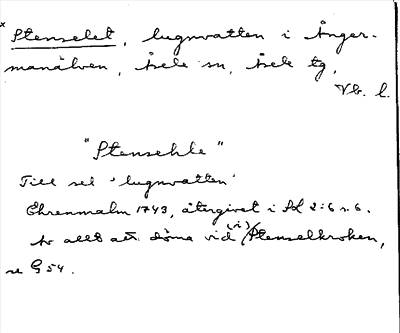 x Stenselet, lugnvatten i Ånger-
manälven, Åsele sn, Åsele tg,
Vb. l.
"Stensehle"
Till sel 'lugnvatten'
Ehrenmalm 1743, återgivet i AL 2:6 s. 6.
Av allt att döma vid (vi) Stenselkroken,
se G 54.